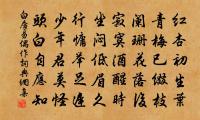 红杏初生葉
青梅已缀枝
阑珊花落後
寂寞酒醒時
坐悶低眉久
行慵舉足遲
少年君莫怪
頭白自應知
白居易偶作詞典網集